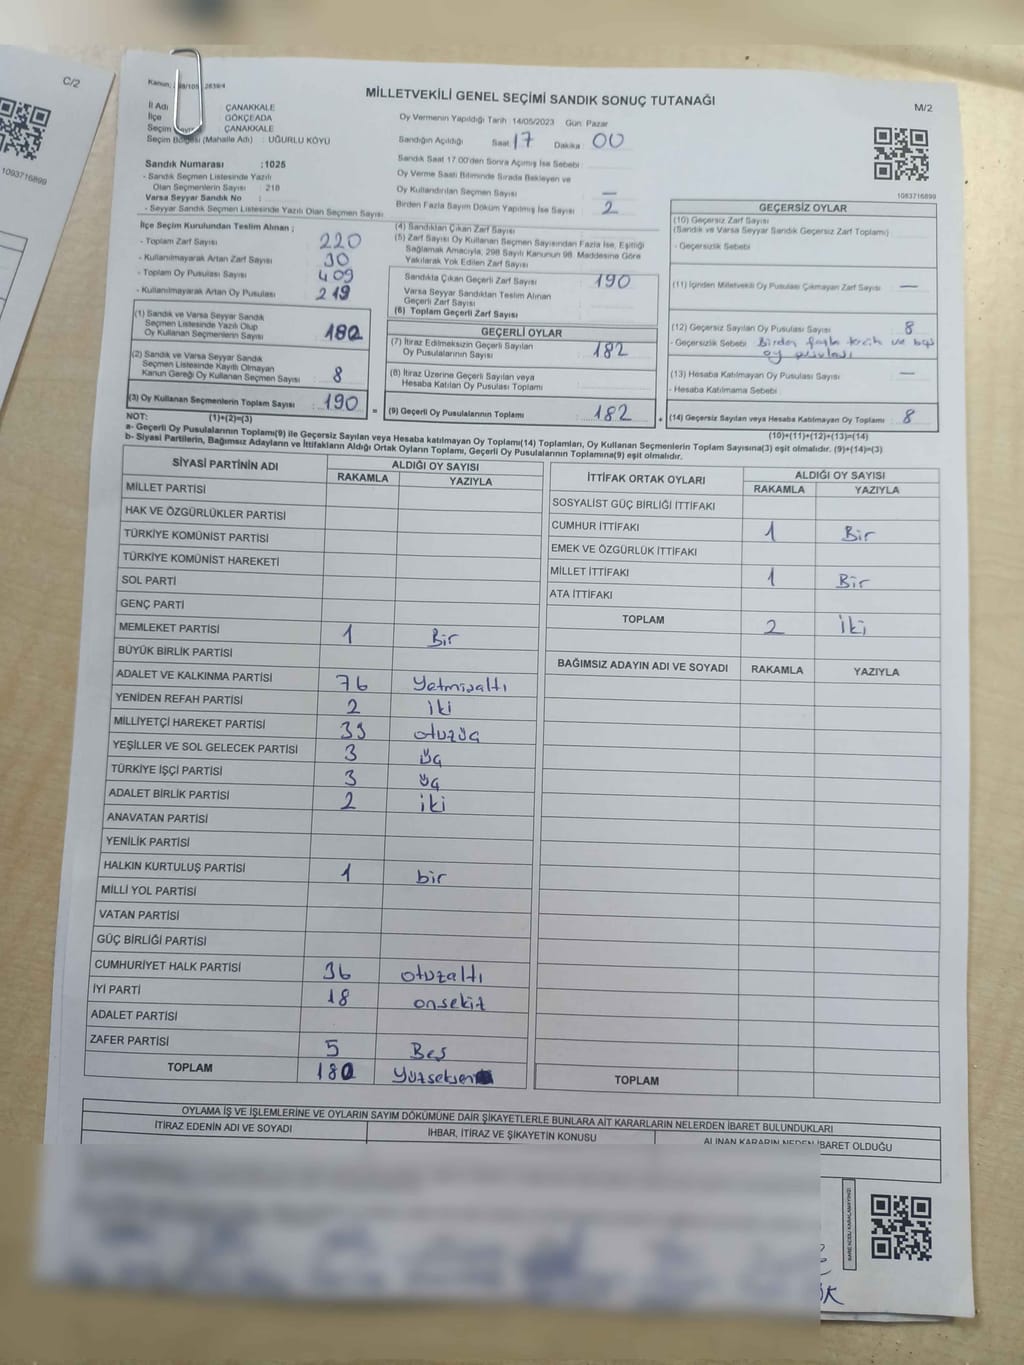 C/2
1093716899
MİLLETVEKİLİ GENEL SEÇİMİ SANDIK SONUÇ TUTANAĞI
M/2
İl Adı : ÇANAKKALE
İlçe : GÖKÇEADA
Seçim : ÇANAKKALE
Seçim Bölgesi (Mahalle Adı) : UĞURLU KÖYÜ
Oy Vermenin Yapıldığı Tarih :14/05/2023 Gün: Pazar
Sandığın Açıldığı Saat 17 Dakika 00
Sandık Saat 17:00'den Sonra Açımış İse Sebebi
Oy Verme Saati Bitiminde Sırada Bekleyen ve
Oy Kullandırılan Seçmen Sayısı —
Birden Fazla Sayım Döküm Yapılmış İse Sayısı 2
Sandık Numarası :1025
- Sandık Seçmen Listesinde Yazılı
Olan Seçmenlerin Sayısı : 218
Varsa Seyyar Sandık No :
- Seyyar Sandık Seçmen Listesinde Yazılı Olan Seçmen Sayısı
1093716899
İlçe Seçim Kurulundan Teslim Alınan ;
- Toplam Zarf Sayısı 220
- Kullanılmayarak Artan Zarf Sayısı 30
- Toplam Oy Pusulası Sayısı 409
- Kullanılmayarak Artan Oy Pusulası 219
(1) Sandık ve Varsa Seyyar Sandık
Seçmen Listesinde Yazılı Olup
Oy Kullanan Seçmenlerin Sayısı 182
(2) Sandık ve Varsa Seyyar Sandık
Seçmen Listesinde Kayıtlı Olmayan
Kanun Gereği Oy Kullanan Seçmen Sayısı 8
(3) Oy Kullanan Seçmenlerin Toplam Sayısı 190
(1)+(2)=(3)
(4) Sandıktan Çıkan Zarf Sayısı
(5) Zarf Sayısı Oy Kullanan Seçmen Sayısından Fazla İse, Eşitliği
Sağlamak Amacıyla, 298 Sayılı Kanunun 98. Maddesine Göre
Yakılarak Yok Edilen Zarf Sayısı
Sandıkta Çıkan Geçerli Zarf Sayısı 190
Varsa Seyyar Sandıktan Teslim Alınan
Geçerli Zarf Sayısı
(6) Toplam Geçerli Zarf Sayısı
GEÇERLİ OYLAR
(7) İtiraz Edilmeksizin Geçerli Sayılan
Oy Pusulalarının Sayısı 182
(8) İtiraz Üzerine Geçerli Sayılan veya
Hesaba Katılan Oy Pusulası Toplamı
= (9) Geçerli Oy Pusulalarının Toplamı 182
GEÇERSİZ OYLAR
(10) Geçersiz Zarf Sayısı
(Sandık ve Varsa Seyyar Sandık Geçersiz Zarf Toplamı)
- Geçersizlik Sebebi
(11) İçinden Milletvekili Oy Pusulası Çıkmayan Zarf Sayısı —
(12) Geçersiz Sayılan Oy Pusulası Sayısı 8
- Geçersizlik Sebebi Birden fazla tercih ve boş
oy pusulası
(13) Hesaba Katılmayan Oy Pusulası Sayısı —
- Hesaba Katılmama Sebebi
+ (14) Geçersiz Sayılan veya Hesaba Katılmayan Oy Toplamı 8
(10)+(11)+(12)+(13)=(14)
NOT:
a- Geçerli Oy Pusulaları Toplamı(9) ile Geçersiz Sayılan veya Hesaba katılmayan Oy Toplamı(14) Toplamları, Oy Kullanan Seçmenlerin Toplam Sayısına(3) eşit olmalıdır. (9)+(14)=(3)
b- Siyasi Partilerin, Bağımsız Adayların ve İttifakların Aldığı Ortak Oyların Toplamı, Geçerli Oy Pusulalarının Toplamına(9) eşit olmalıdır.
SİYASİ PARTİNİN ADI ALDIĞI OY SAYISI
RAKAMLA YAZIYLA
MİLLET PARTİSİ
HAK VE ÖZGÜRLÜKLER PARTİSİ
TÜRKİYE KOMÜNİST PARTİSİ
TÜRKİYE KOMÜNİST HAREKETİ
SOL PARTİ
GENÇ PARTİ
MEMLEKET PARTİSİ 1 Bir
BÜYÜK BİRLİK PARTİSİ
ADALET VE KALKINMA PARTİSİ 76 Yetmişaltı
YENİDEN REFAH PARTİSİ 2 iki
MİLLİYETÇİ HAREKET PARTİSİ 33 otuzüç
YEŞİLLER VE SOL GELECEK PARTİSİ 3 üç
TÜRKİYE İŞÇİ PARTİSİ 3 üç
ADALET BİRLİK PARTİSİ 2 iki
ANAVATAN PARTİSİ
YENİLİK PARTİSİ
HALKIN KURTULUŞ PARTİSİ 1 bir
MİLLİ YOL PARTİSİ
VATAN PARTİSİ
GÜÇ BİRLİĞİ PARTİSİ
CUMHURİYET HALK PARTİSİ 36 otuzaltı
İYİ PARTİ 18 onsekiz
ADALET PARTİSİ
ZAFER PARTİSİ 5 Beş
TOPLAM 180 Yüzseksen
İTTİFAK ORTAK OYLARI ALDIĞI OY SAYISI
RAKAMLA YAZIYLA
SOSYALİST GÜÇ BİRLİĞİ İTTİFAKI
CUMHUR İTTİFAKI 1 Bir
EMEK VE ÖZGÜRLÜK İTTİFAKI
MİLLET İTTİFAKI 1 Bir
ATA İTTİFAKI
TOPLAM 2 iki
BAĞIMSIZ ADAYIN ADI VE SOYADI RAKAMLA YAZIYLA
TOPLAM
OYLAMA İŞ VE İŞLEMLERİNE VE OYLARIN SAYIM DÖKÜMÜNE DAİR ŞİKAYETLERLE BUNLARA AİT KARARLARIN NELERDEN İBARET BULUNDUKLARI
İTİRAZ EDENİN ADI VE SOYADI İHBAR, İTİRAZ VE ŞİKAYETİN KONUSU ALINAN KARARIN NEDEN İBARET OLDUĞU